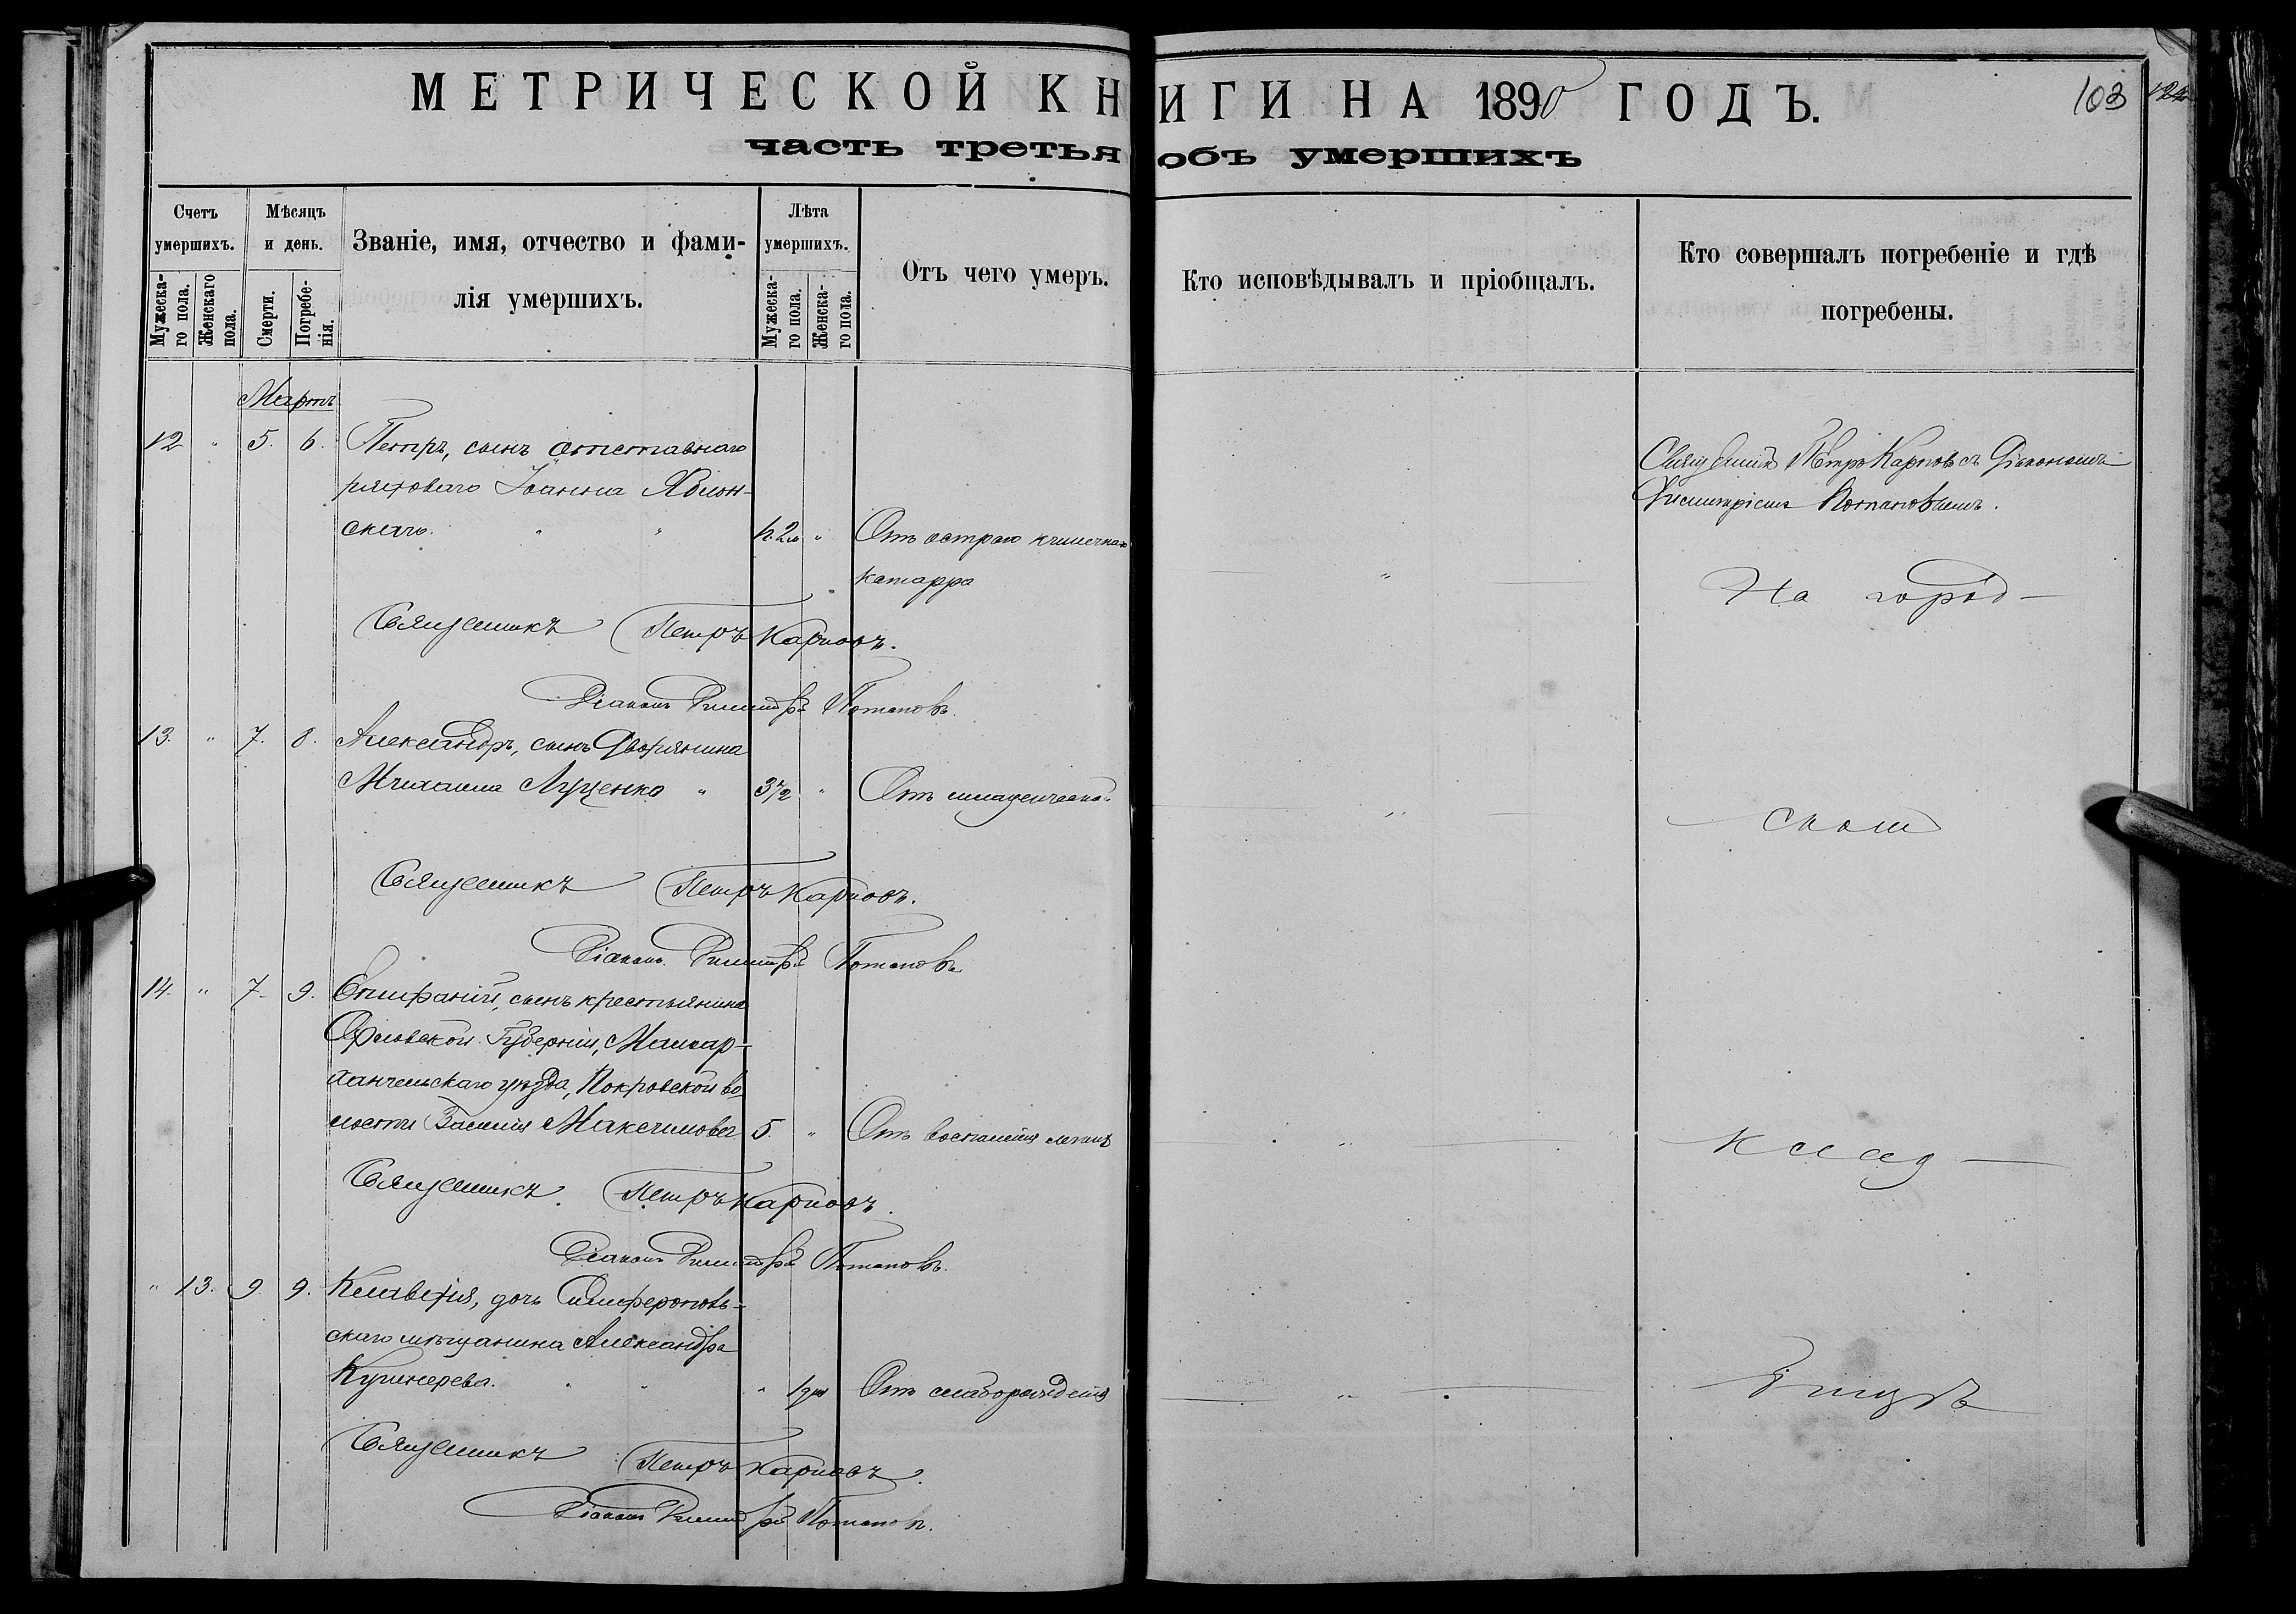 МЕТРИЧЕСКОЙ КНИГИ НА 1890 ГОДЪ.
103
часть третья объ умершихъ
Счетъ умершихъ.
Мужескаго пола.
Женскаго пола.
Мѣсяцъ и день.
Смерти.
Погребенія.
Званіе, имя, отчество и фами-
лія умершихъ.
Лѣта умершихъ.
Мужескаго пола.
Женскаго пола.
Отъ чего умеръ.
Кто исповѣдывалъ и пріобщалъ.
Кто совершалъ погребеніе и гдѣ
погребены.
Мартъ
12 " 5. 6. Петръ, сынъ отставнаго
рядоваго Іоанна Яблон-
скаго. " " " Отъ остраго кишечнаго
катарра
Священникъ Петръ Карповъ съ Діакономъ
Димитріемъ Потаповымъ.
На город-
Священникъ Петръ Карповъ.
Діаконъ Димитрій Потаповъ.
13. " 7. 8. Александръ, сынъ Дворянина
Михаила Луценко " 3½ " Отъ младенческой "
ском
Священникъ Петръ Карповъ.
Діаконъ Димитрій Потаповъ
14. " 7. 9. Епифаній, сынъ крестьянина
Орловской Губерніи, Малоар-
хангельскаго уѣзда, Покровской во-
лости Василія Максимова 5. " Отъ воспаленія легкихъ "
клад-
Священникъ Петръ Карповъ.
Діаконъ Димитрій Потаповъ.
" 13. 9. 9. Клавдія, дочь Симферополь-
скаго мѣщанина Александра
Кушнерева. " " " 1 дня Отъ слаборожденія "
бищѣ
Священникъ Петръ Карповъ.
Діаконъ Димитрій Потаповъ.